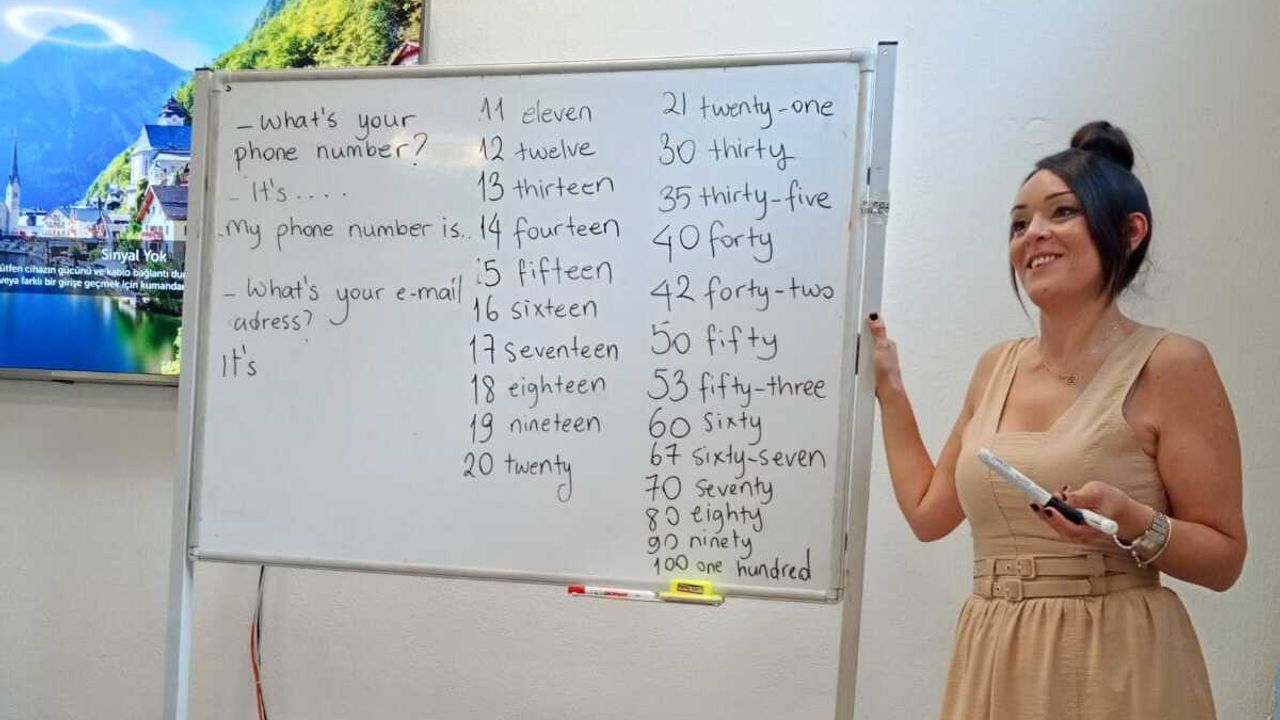 Sinyal Yok
ütfen cihazın gücünü ve kablo bağlantı du
veya farklı bir girişe geçmek için kumandar
- What's your
phone number?
- It's ....
- My phone number is..
- What's your e-mail
adress?
It's
11 eleven
12 twelve
13 thirteen
14 fourteen
15 fifteen
16 sixteen
17 seventeen
18 eighteen
19 nineteen
20 twenty
21 twenty-one
30 thirty
35 thirty-five
40 forty
42 forty-two
50 fifty
53 fifty-three
60 sixty
67 sixty-seven
70 seventy
80 eighty
90 ninety
100 one hundred